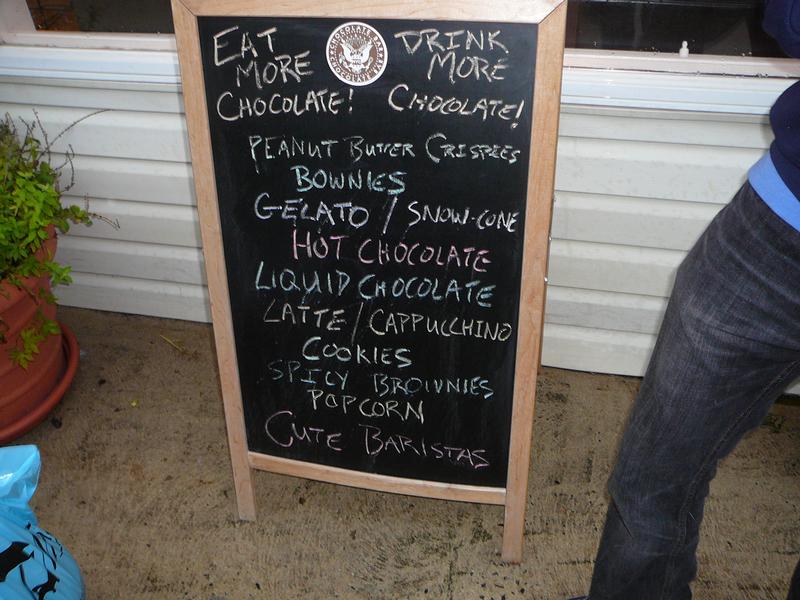 EAT MORE CHOCOLATE!
DRINK MORE CHOCOLATE!
CHOCOLATE PARTY
CHOCOLATE PARTY
PEANUT BUTTER CRISPEES
BOWNIES
GELATO / SNOW-CONE
HOT CHOCOLATE
LIQUID CHOCOLATE
LATTE / CAPPUCCHINO
COOKIES
SPICY BROWNIES
POPCORN
CUTE BARISTAS